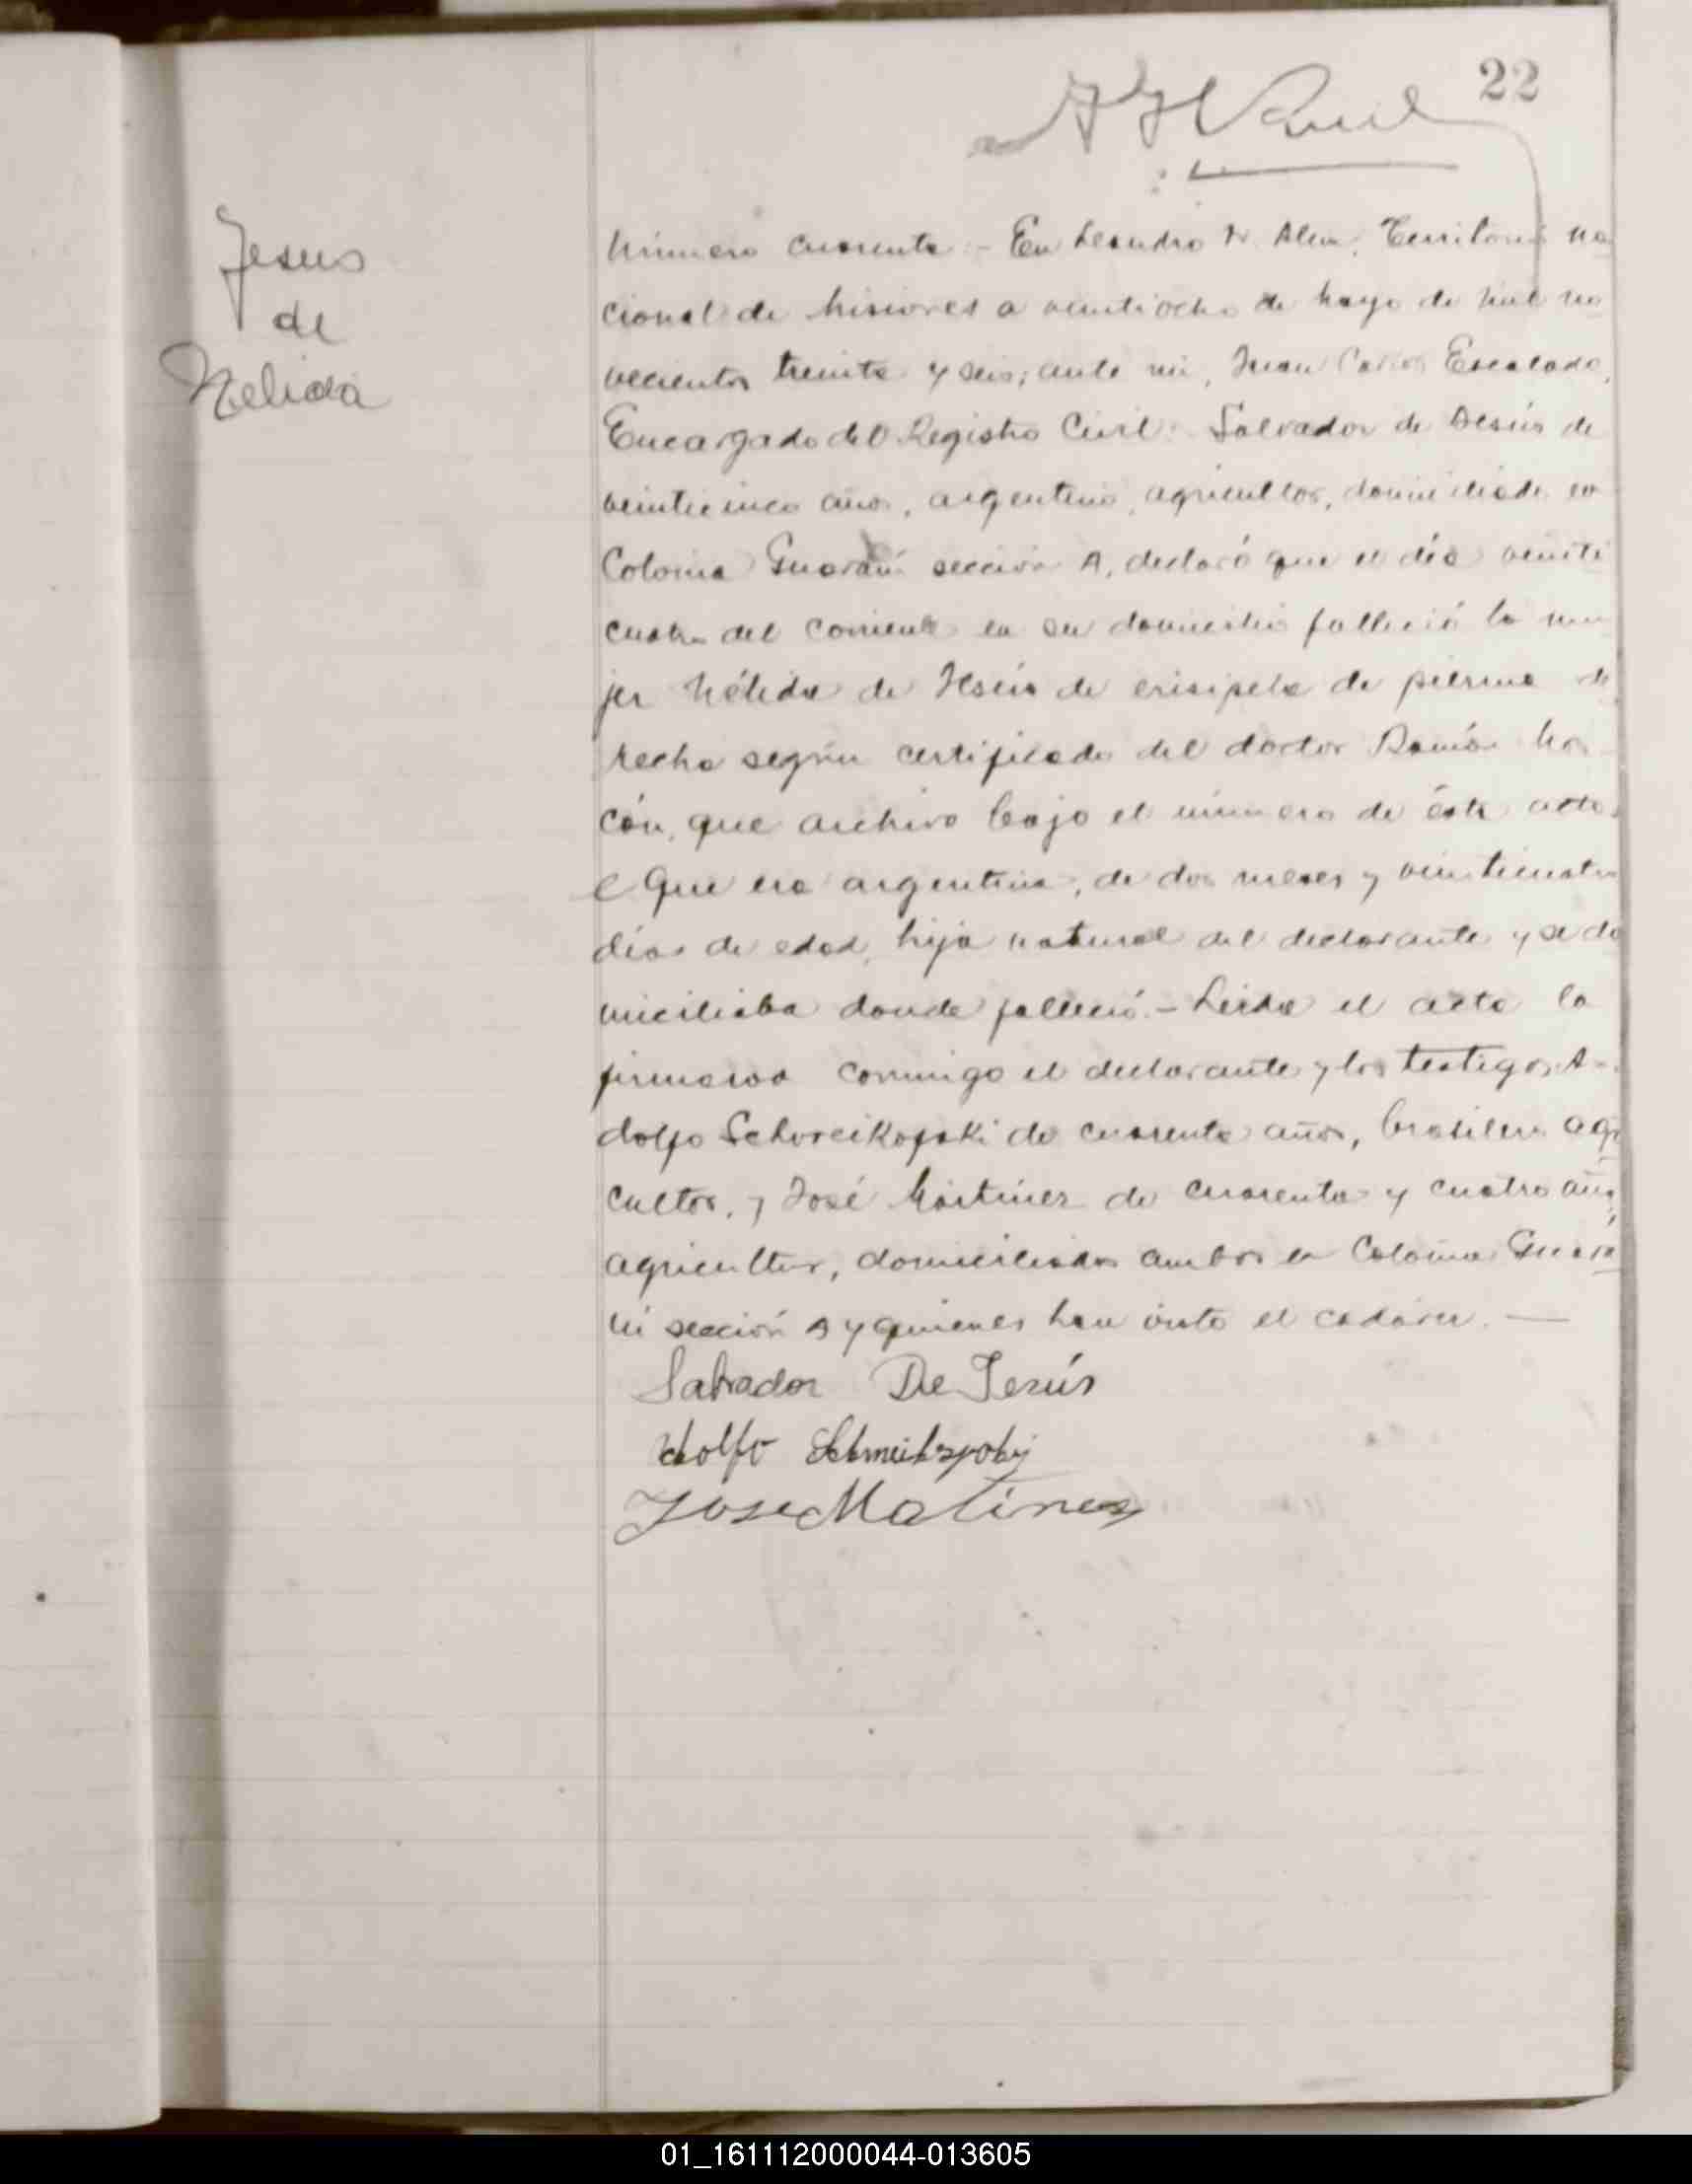 22
Jesus
de
Nelida
Número cuarenta.- En Leandro N. Alem, Territorio na
cional de Misiones a veintiocho de Mayo de mil no
vecientos treinta y seis; ante mi, Juan Carlos Escalada,
Encargado del Registro Civil: Salvador de Jesús de
veinticinco años, argentino, agricultor, domiciliado en
Colonia Guaraní sección A, declaró que el día veinti
cuatro del corriente en su domicilio falleció la mu
jer Nélida de Jesús de erisipela de pierna de
recha según certificado del doctor Ramón
que archivo bajo el número de ésta acta.
Que era argentina, de dos meses y veinticuatro
días de edad, hija natural del declarante y se do
miciliaba donde falleció.- Leída el acta la
firmaron conmigo el declarante y los testigos A-
dolfo de cuarenta años, brasilero agri
cultor, y José Martínez de cuarenta y cuatro años
agricultor, domiciliados ambos en Colonia Guara
ní sección A y quienes han visto el cadáver. —
Salvador De Jesús
Adolfo
Jose Matinez
01_161112000044-013605